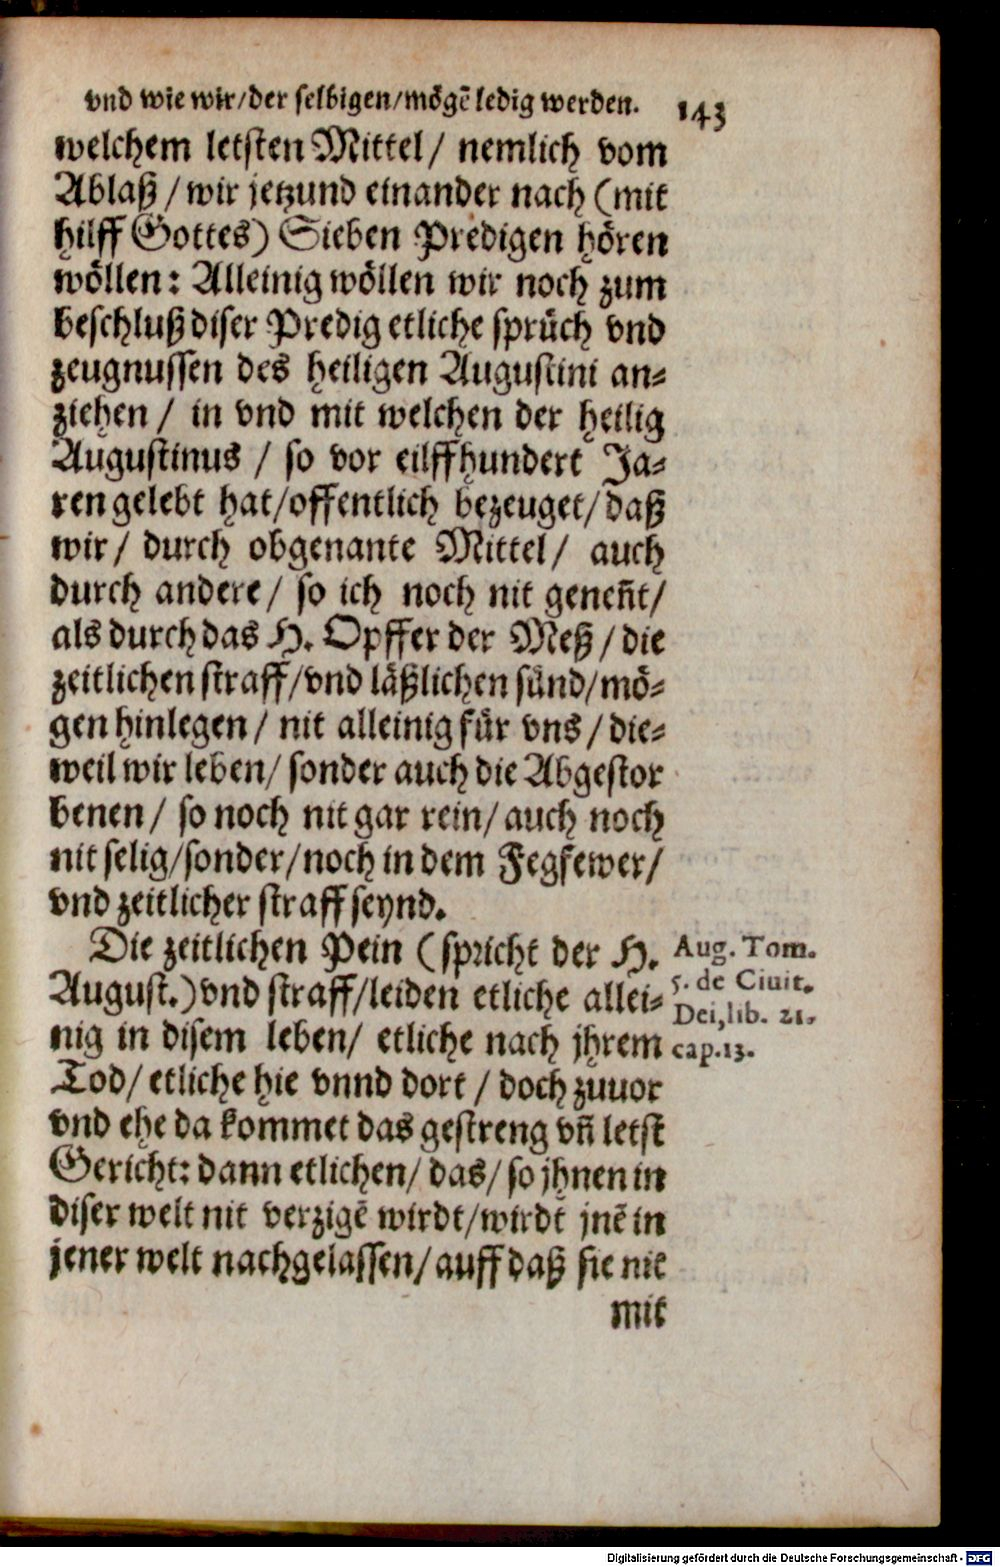 vnd wie wir/der selbigen/mögẽ ledig werden. 143
welchem letsten Mittel/ nemlich vom
Ablaß/wir jetzund einander nach (mit
hilff Gottes) Sieben Predigen hören
wöllen: Alleinig wöllen wir noch zum
beschluß diser Predig etliche sprüch vnd
zeugnussen des heiligen Augustini an-
ziehen/ in vnd mit welchen der heilig
Augustinus / so vor eilffhundert Ja-
ren gelebt hat/offentlich bezeuget/daß
wir/ durch obgenante Mittel/ auch
durch andere/ so ich noch nit geneñt/
als durch das H. Opffer der Meß/die
zeitlichen straff/vnd läßlichen sünd/mö-
gen hinlegen/ nit alleinig für vns/die-
weil wir leben/sonder auch die Abgestor
benen/ so noch nit gar rein/auch noch
nit selig/sonder/noch in dem Fegfewer/
vnd zeitlicher straff seynd.
Die zeitlichen Pein (spricht der H.
August.)vnd straff/leiden etliche allei-
nig in disem leben/ etliche nach jhrem
Tod/etliche hie vnnd dort/doch zuuor
vnd ehe da kommet das gestreng vñ letst
Gericht: dann etlichen/das/so jhnen in
diser welt nit verzigẽ wirdt/wirdt jnẽ in
jener welt nachgelassen/auff daß sie nit
mit
Aug. Tom.
5. de Ciuit.
Dei,lib. 21.
cap.13.
Digitalisierung gefördert durch die Deutsche Forschungsgemeinschaft - DFG